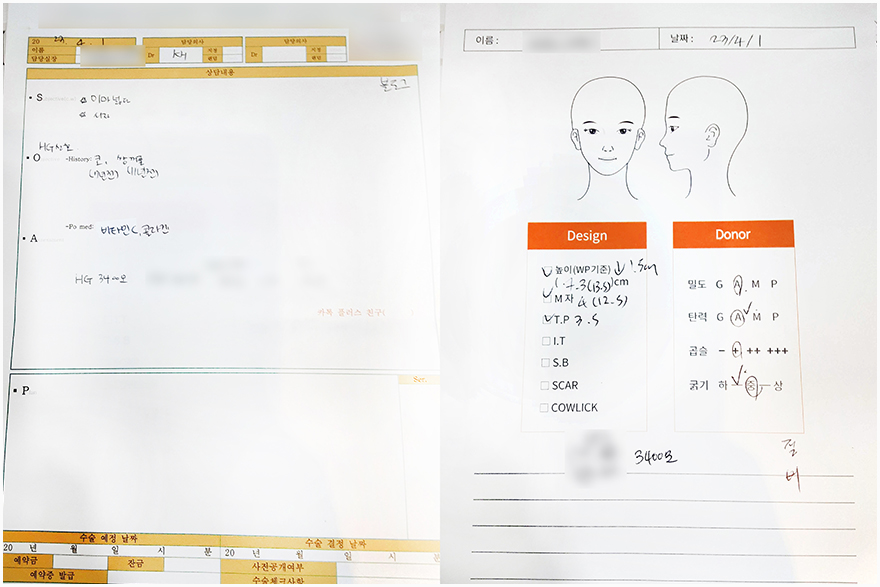 20 23. 4. 1 담당의사 담당의사
이름 Dr KH 지정 Dr 지정
담당실장 랜덤 랜덤
상담내용
블로그
• S 이마 넓다
HG상담
• O -History: 코, 쌍꺼풀
-Po med: 비타민C, 콜라겐
• A
HG 3400모
카톡 플러스 친구(
Ser.
▪ P
수술 예정 날짜 수술 결정 날짜
20 년 월 일 시 분 20 년 월 일 시
예약금 잔금 사전공개여부
예약증 발급 수술체크사항
이름 : 날짜 : 23/4/1
Design
높이(WP기준) ↓ 1.5cm
7.3(13.5)cm
M 자 (12.5)
T.P 3.5
I.T
S.B
SCAR
COWLICK
Donor
밀도 G A M P
탄력 G A M P
곱슬 - + ++ +++
굵기 하 중 상
3400모
절
비